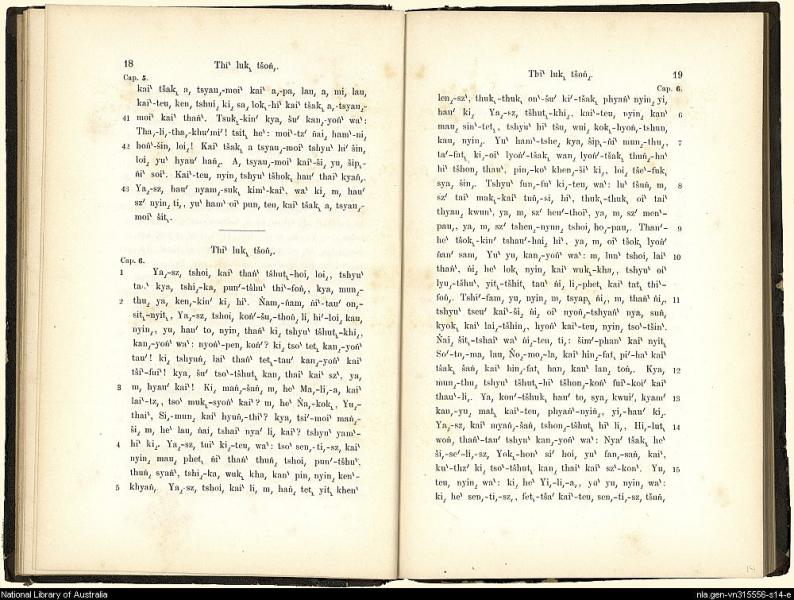 18 Thiʻ luk˛ tšoń,.
Cap. 5.
kaiʻ tšak˛ a, tsyan,-moiʻ kaiʻ a,-pa, lau, a, mi, lau,
kaiʻ-teu, ken, tshui˛ ki, sa, lok,-hiʻ kaiʻ tšak˛ a,-tsyan,-
41 moiʻ kaiʻ thańʻ. Tsuk,-kinʼ kya, šuʼ kan,-yońʻ wa:
Tha,-li,-tha,-khuʼmiʼ! tsit, heʻ: moi-tzʼ ńai, hamʻ-ni,
42 hońʻ-šin, loi,! Kaiʻ tšak, a tsyau,-moi tshyu hiʼ šin,
loi, yuʻ hyauʼ hań,. A, tsyau,-moi kaiʻ-ši yu, šip,-
ńiʻ soiʻ. Kaiʻ-teu, nyin, tshyuʻ tšhok, hauʼ thaiʻ kyań,.
43 Ya,-sz, hauʼ nyam,-suk, kimʻ-kaiʻ, waʻ ki, m, hauʼ
szʼ nyin, ti,, yuʻ hamʻ oi pun, teu, kaiʻ tšak, a, tsyan,-
moiʻ šit,.
Thiʻ luk, tšoń,.
Cap. 6.
1 Ya,-sz, tshoi, kaiʻ thańʻ tšhut,-hoi, loi,, tshyuʻ
kya, tshi,-ka, punʼ-tšhuʻ thiʻ-foń, kya, mun,-
2 thu, ya, ken,-kinʼ ki, hiʻ. Ńam,-ńam, ńiʻ-tauʼ on,-
sit,-nyit,, Ya,-sz, tshoi, końʼ-šu,-thoń, li, hiʼ-loi, kau,
nyin,, yu, hauʼ to, nyin, thań ki, tshyu tšhut,-khi,,
kan,-yońʻ waʻ: nyońʻ-pen, końʼ? ki, tsoʻ tet, kan,-yońʻ
tauʼ! ki, tshyuń, lai thań tet,-tauʼ kan,-yońʻ kaiʻ
tšiʼ-fuiʼ! kya, šuʼ tsoʻ-tšhut, kan, thai kaiʻ szʻ, ya,
3 m, hyauʼ kaiʻ! Ki, mań,-šań, m, heʻ Ma,-li,-a, kaiʻ
laiʻ-tz,, tsoʻ muk,-syońʻ kaiʻ? m, heʻ Ńa,-kok,, Yu,-
thaiʻ, Si,-mun, kaiʻ hyuń,-thiʻ? kya, tsiʼ-moiʻ mań,-
ši, m, heʻ lau, ńai, tshaiʻ nyaʼ li, kaiʻ? tshyuʻ yamʻ-
4 hiʻ ki,. Ya,-sz, tuiʻ ki,-teu, waʻ: tsoʻ sen,-ti,-sz, kaiʻ
nyin, mau, phet, ńiʻ thańʻ thuń, tshoi, punʼ-tšhuʻ,
thuń, syańʻ, tshi,-ka, wuk, kha, kanʻ pin, nyin, kenʻ-
5 khyań, Ya,-sz, tshoi, kaiʻ li, m, hań, tet, yit, khenʻ
Thiʻ luk, tšoń,. 19
Cap. 6.
len,-szʻ, thuk,-thuk, onʻ-šuʼ kiʼ-tšak, phyańʻ nyin, yi,
hauʼ ki, Ya,-sz, tšhut,-khi,, kaiʻ-teu, nyin, kanʻ 6
mau, sinʻ-tet,, tshyuʻ hiʻ tšu, wui, kok,-hyoń,-tshun,
kau, nyin,. Yuʻ hamʻ-tshe, kya, šip,-ńiʻ mun,-thu,, 7
taʼ-fat, ki,-oiʻ lyońʼ-tšak, wan, lyońʼ-tšak, thuń,-haʻ
hiʻ tšhon, thauʻ, pin,-koʻ khen,-šiʻ ki,, loi, tšeʻ-fuk,
sya, šin,. Tshyuʻ fun,-fuʻ ki,-teu, waʻ: luʻ tšhuń, m, 8
szʼ taiʻ mak,-kaiʻ tuń,-si, hiʻ, thuk,-thuk, oiʻ taiʻ
thyau, kwunʻ, ya, m, szʼ heuʼ-thoiʻ, ya, m, szʼ menʻ-
pau,, ya, m, szʼ tshen,-nyun, tshoi, ho,-pau,. Thanʼ- 9
heʻ tšok,-kinʼ tshauʼ-hai, hiʻ. ya, m, oiʻ tšok, lyońʼ
ńanʼ sam, Yuʻ yu, kan,-yońʻ waʻ: m, lunʻ tshoi, lai 10
thańʻ, ńi, he lok, nyin, kaiʻ wuk,-kha,, tshyuʻ oiʻ
lyu,-tšhuʻ, yit,-tšhit, tauʻ ńi, li,-phet, kaiʻ tat, thiʻ-
foń,. Tshiʼ-fam, yu, nyin, m, tsyap, ńi,, m, thańʻ ńi,, 11
tshyuʻ tseuʼ kaiʻ-ši, ńi, oiʻ nyoń,-tshyańʻ nya, suń,
kyok, kaiʻ lai,-tšhin,, hyońʻ kaiʻ-teu, nyin, tsoʻ-tšinʻ.
Ńai, šit,-tshaiʻ waʻ ńi,-teu, ti,: šimʼ-phanʻ kaiʻ nyit,
Soʼ-to,-ma, lau, Ńo,-mo,-la, kaiʻ hin,-fat, piʼ-haʻ kaiʻ
tšak, šań, kaiʻ hin,-fat, han, kauʻ lan, toń,. Kya, 12
mun,-thu, tshyuʻ tšhut,-hiʻ tšhon,-końʻ fuiʼ-koiʼ kaiʻ
thauʻ-li,. Ya, konʼ-tšhuk, hauʼ to, sya, kwuiʼ, kyamʼ 13
kan,-yu, mat, kaiʻ-teu, phyańʻ-nyin,, yi,-hauʼ ki,.
Ya,-sz, kaiʻ myań,-šań, tshon,-tšhut, hiʻ li,, Hi,-lut, 14
woń, thańʻ-tauʼ tshyuʻ kan,-yońʻ waʻ: Nyaʼ tšak, heʻ
ši,-seʼ-li,-sz, Yok,-honʻ siʼ hoi, yuʻ fan,-sań, kaiʻ,
kuʻ-thzʼ ki, tsoʻ-tšhut, kan, thaiʻ kaiʻ szʼ-konʻ. Yu, 15
teu, nyin, waʻ: ki, heʻ Yi,-li,-a,, yuʻ yu, nyin, waʻ:
ki, heʻ sen,-ti,-sz,, fet,-tšaʼ kaiʻ-teu, sen,-ti,-sz, tšuń,
National Library of Australia
nla.gen-vn315556-s14-e